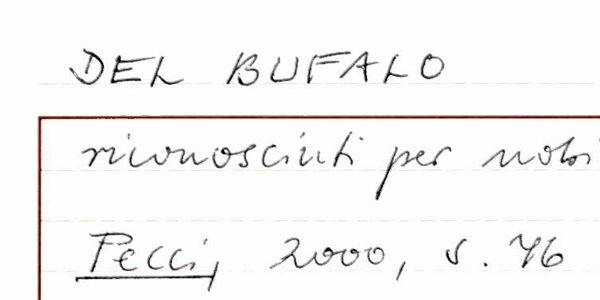 DEL BUFALO
riconosciuti per nobi
Pecci, 2000, s. 46